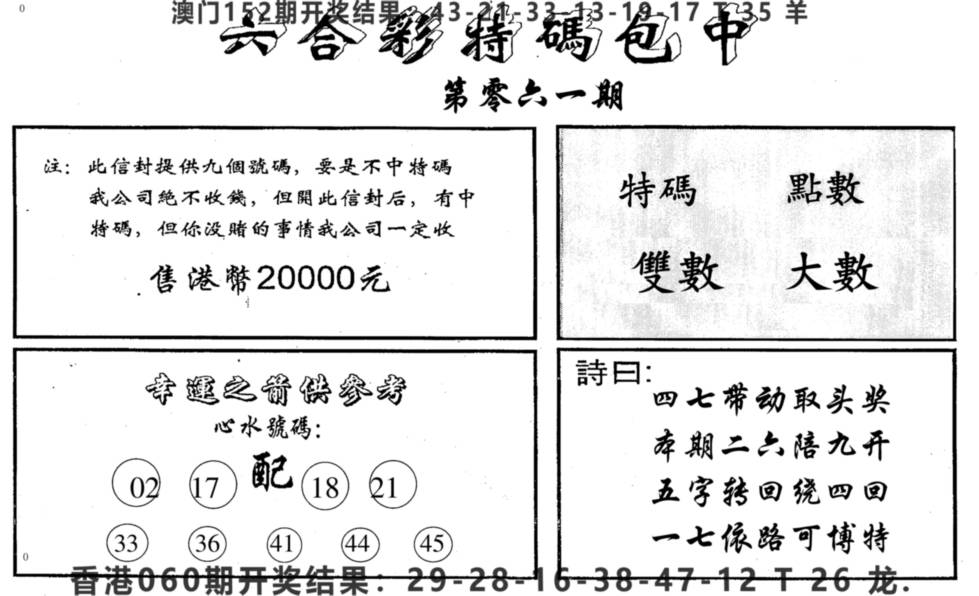 澳门152期开奖结果：43-21-33-13-19-17 T 35 羊
六合彩特碼包中
第零六一期
注：此信封提供九個號碼，要是不中特碼
我公司絶不收錢，但開此信封后，有中
特碼，但你没賭的事情我公司一定收
售港幣20000元
特碼 點數
雙數 大數
幸運之前供參考
心水號碼：
02 17 配 18 21
33 36 41 44 45
詩曰:
四七带动取头奖
本期二六陪九开
五字转回绕四回
一七依路可博特
香港060期开奖结果：29-28-16-38-47-12 T 26 龙.
0
0